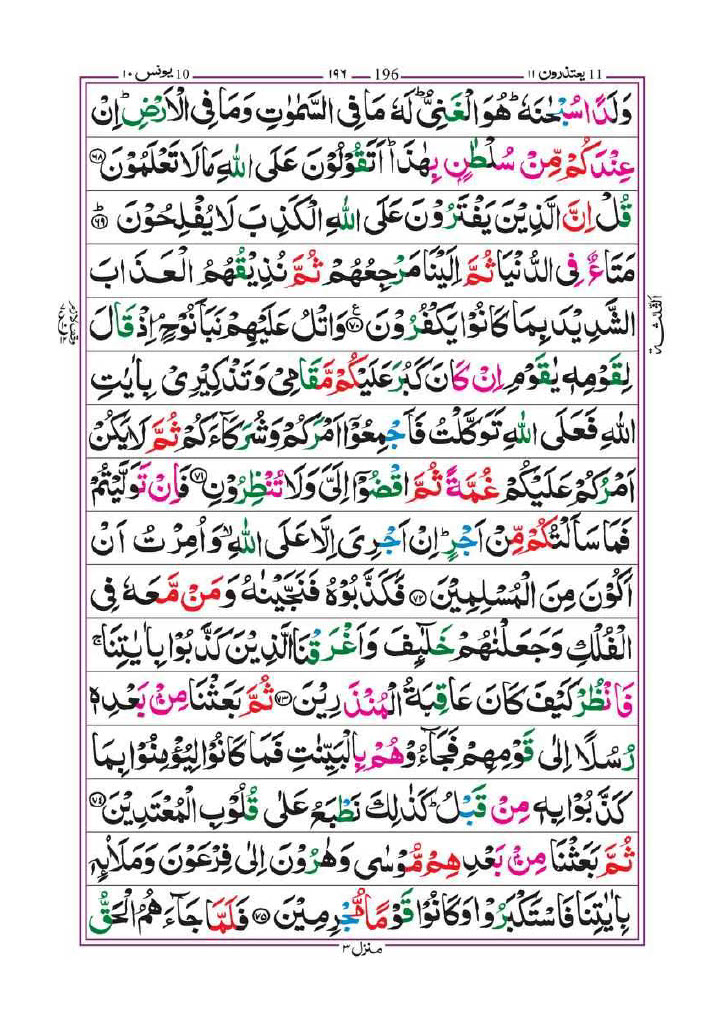 يونس ١٠ 10 ١٩٦ 196 يعتذرون ١١ 11
وَلَدًا سُبْحٰنَهٗ ؕ هُوَ الْغَنِىُّ ؕ لَهٗ مَا فِى السَّمٰوٰتِ وَمَا فِى الْاَرْضِ ؕ اِنْ
عِنْدَكُمْ مِّنْ سُلْطٰنٍۭ بِهٰذَا ؕ اَتَقُوْلُوْنَ عَلَى اللّٰهِ مَا لَا تَعْلَمُوْنَ ﴿۶۸﴾
قُلْ اِنَّ الَّذِيْنَ يَفْتَرُوْنَ عَلَى اللّٰهِ الْكَذِبَ لَا يُفْلِحُوْنَ ؕ ﴿۶۹﴾
مَتَاعٌ فِى الدُّنْيَا ثُمَّ اِلَيْنَا مَرْجِعُهُمْ ثُمَّ نُذِيْقُهُمُ الْعَذَابَ
الشَّدِيْدَ بِمَا كَانُوْا يَكْفُرُوْنَ ﴿۷۰﴾ ع وَاتْلُ عَلَيْهِمْ نَبَاَ نُوْحٍ ۘ اِذْ قَالَ
لِقَوْمِهٖ يٰقَوْمِ اِنْ كَانَ كَبُرَ عَلَيْكُمْ مَّقَامِىْ وَتَذْكِيْرِىْ بِاٰيٰتِ
اللّٰهِ فَعَلَى اللّٰهِ تَوَكَّلْتُ فَاَجْمِعُوْۤا اَمْرَكُمْ وَشُرَكَآءَكُمْ ثُمَّ لَا يَكُنْ
اَمْرُكُمْ عَلَيْكُمْ غُمَّةً ثُمَّ اقْضُوْۤا اِلَىَّ وَلَا تُنْظِرُوْنِ ﴿۷۱﴾ فَاِنْ تَوَلَّيْتُمْ
فَمَا سَاَلْتُكُمْ مِّنْ اَجْرٍ ؕ اِنْ اَجْرِىَ اِلَّا عَلَى اللّٰهِ ۙ وَاُمِرْتُ اَنْ
اَكُوْنَ مِنَ الْمُسْلِمِيْنَ ﴿۷۲﴾ فَكَذَّبُوْهُ فَنَجَّيْنٰهُ وَمَنْ مَّعَهٗ فِى
الْفُلْكِ وَجَعَلْنٰهُمْ خَلٰٓئِفَ وَاَغْرَقْنَا الَّذِيْنَ كَذَّبُوْا بِاٰيٰتِنَا ۚ
فَانْظُرْ كَيْفَ كَانَ عَاقِبَةُ الْمُنْذَرِيْنَ ﴿۷۳﴾ ثُمَّ بَعَثْنَا مِنْۢ بَعْدِهٖ
رُسُلًا اِلٰى قَوْمِهِمْ فَجَآءُوْهُمْ بِالْبَيِّنٰتِ فَمَا كَانُوْا لِيُؤْمِنُوْا بِمَا
كَذَّبُوْا بِهٖ مِنْ قَبْلُ ؕ كَذٰلِكَ نَطْبَعُ عَلٰى قُلُوْبِ الْمُعْتَدِيْنَ ﴿۷۴﴾
ثُمَّ بَعَثْنَا مِنْۢ بَعْدِهِمْ مُّوْسٰى وَهٰرُوْنَ اِلٰى فِرْعَوْنَ وَمَلَا۟ئِهٖ
بِاٰيٰتِنَا فَاسْتَكْبَرُوْا وَكَانُوْا قَوْمًا مُّجْرِمِيْنَ ﴿۷۵﴾ فَلَمَّا جَآءَهُمُ الْحَقُّ
منزل ٣
الثلثة